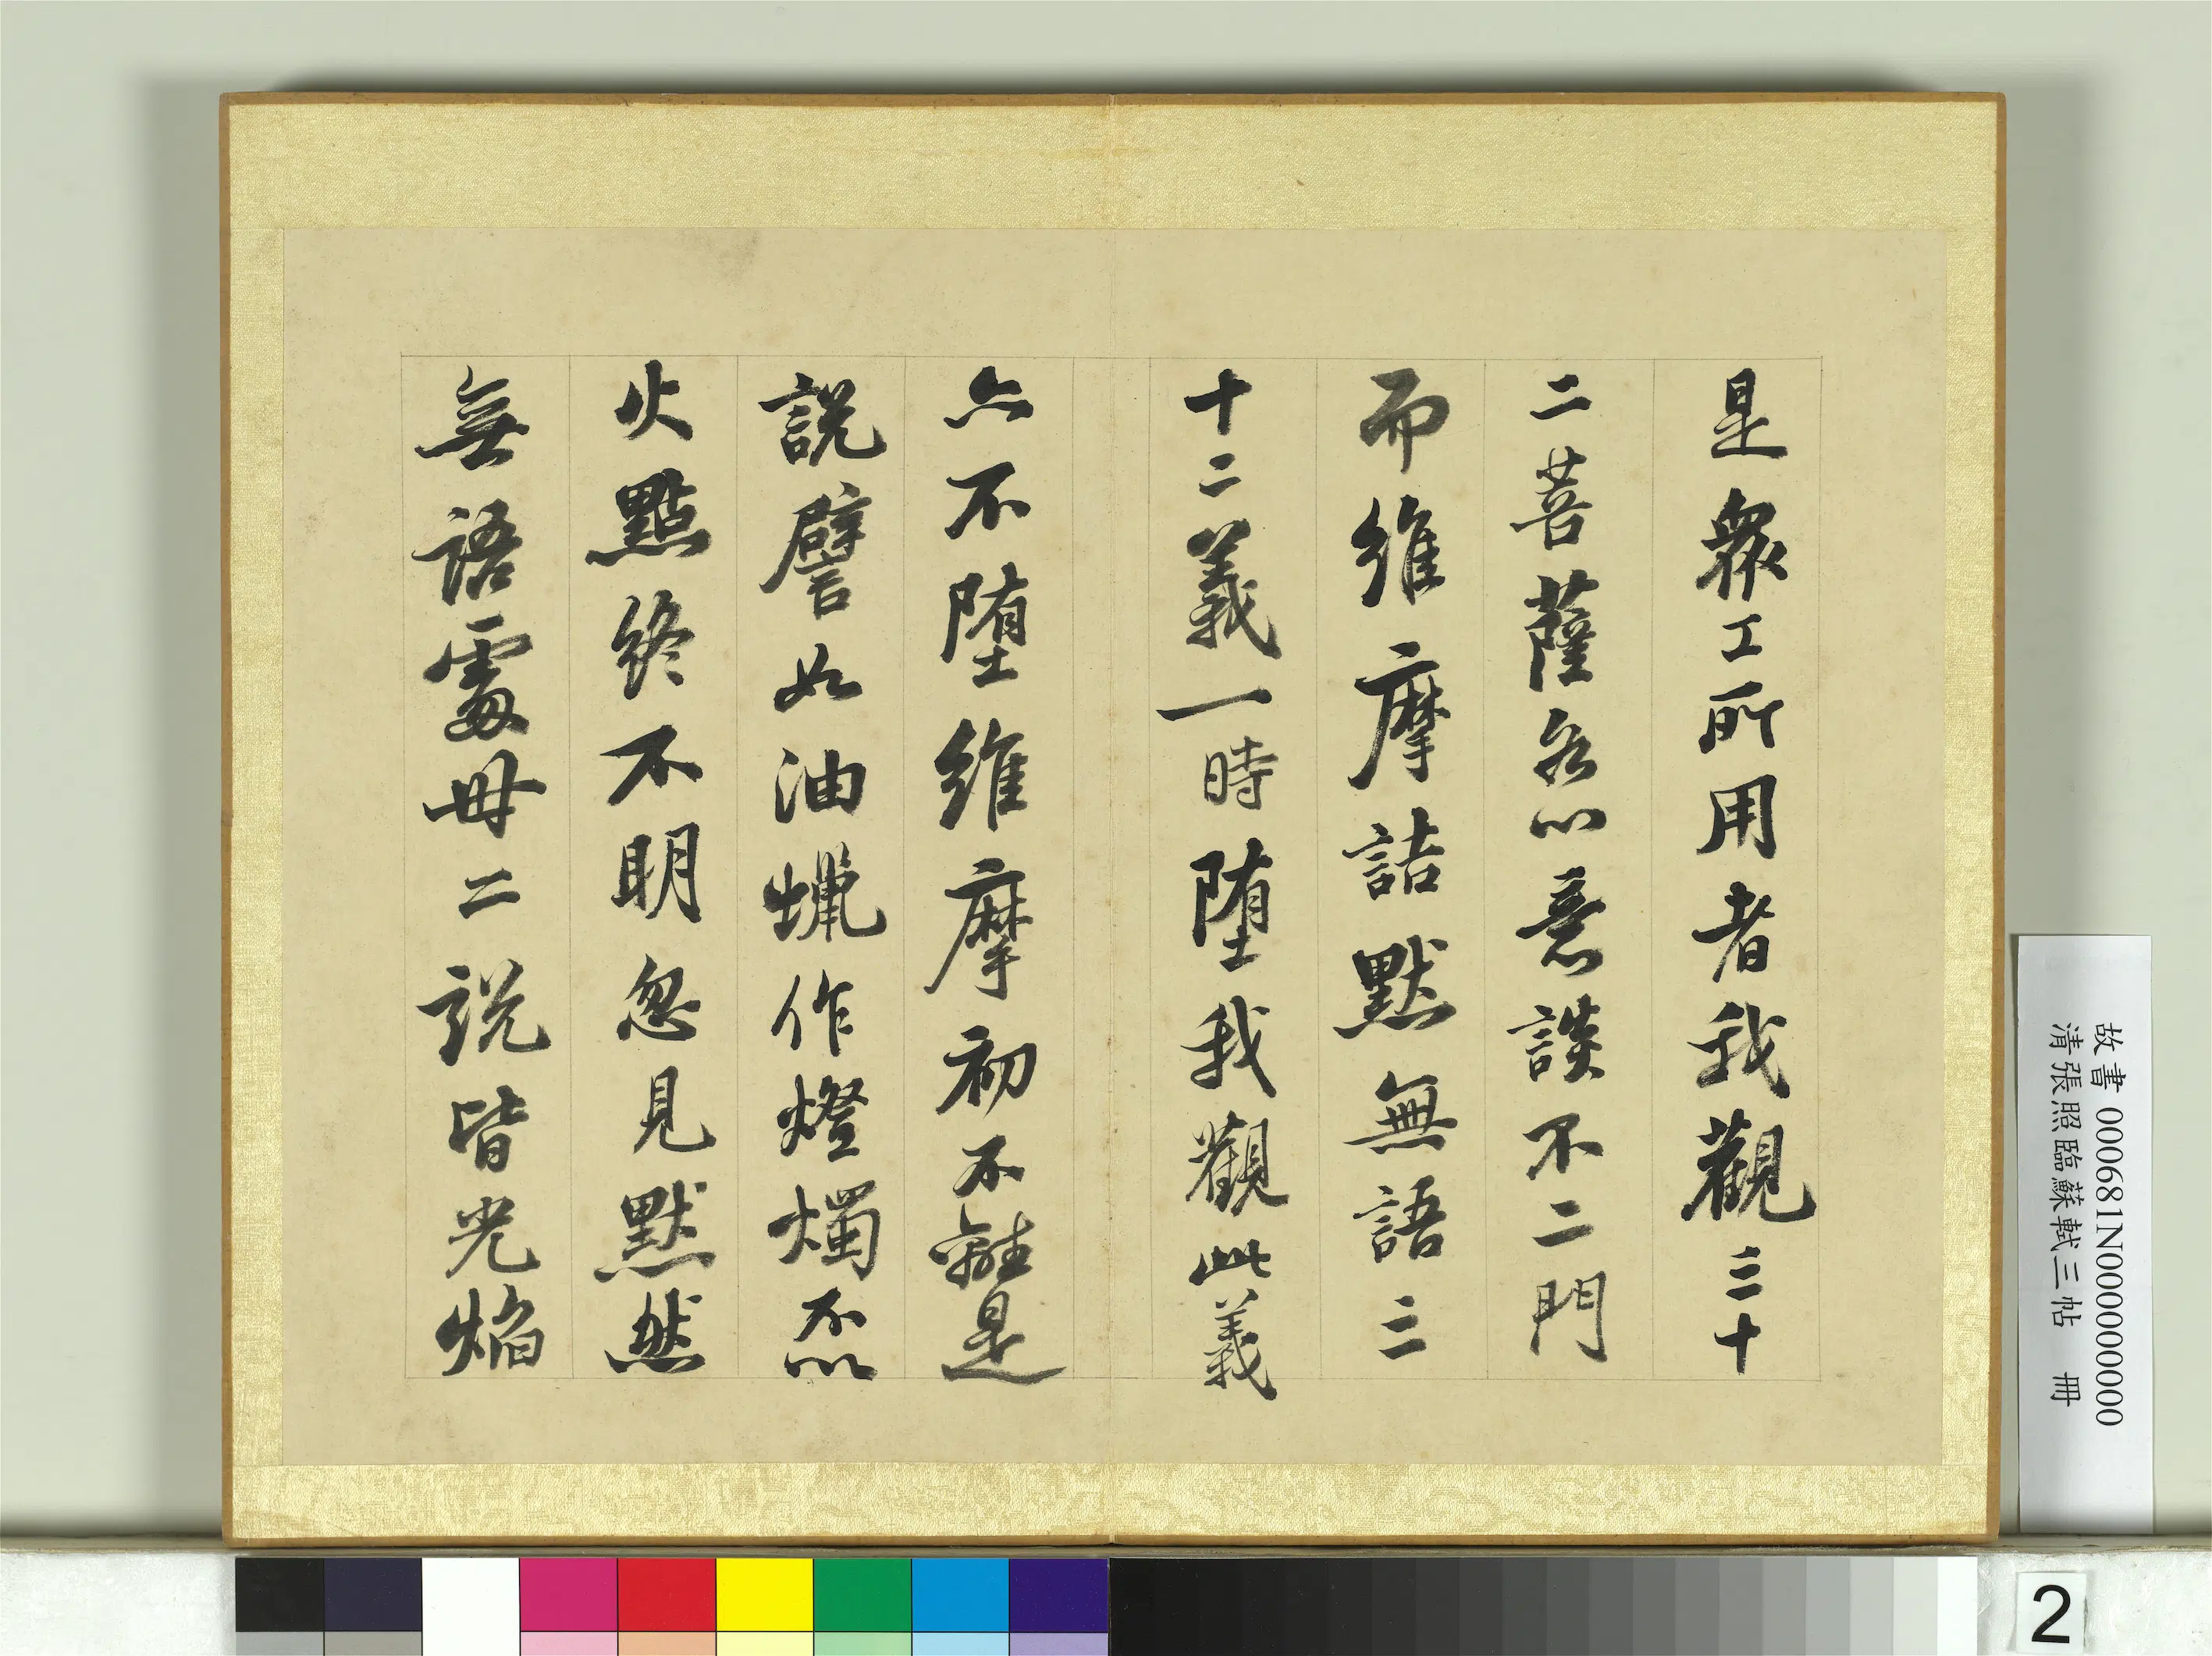 是眾工所用者我觀三十
二菩薩各以意談不二門
而維摩詰默無語三
十二義一時墮我觀此義
亦不墮維摩初不離是
說譬如油蠟作燈燭不以
火點終不明忽見默然
無語處毋二說皆光焰
故書 000681N000000000
清張照臨蘇軾三帖 冊
2